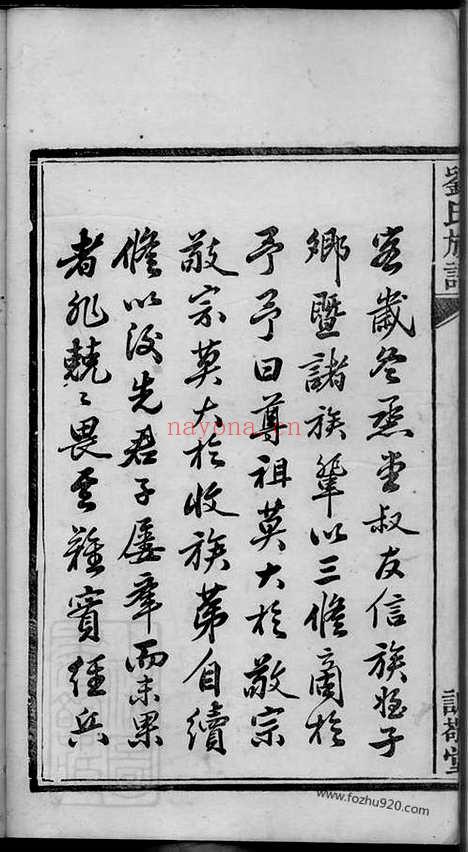 劉氏族譜
客歲冬烝堂叔友信族侄子
鄉暨諸族輩以三修商於
予予曰尊祖莫大於敬宗
敬宗莫大於收族第自續
修以後先君子屢舉而未果
者非兢々畏其難實經兵
敬堂
nayona.cn
www.fozhu920.com